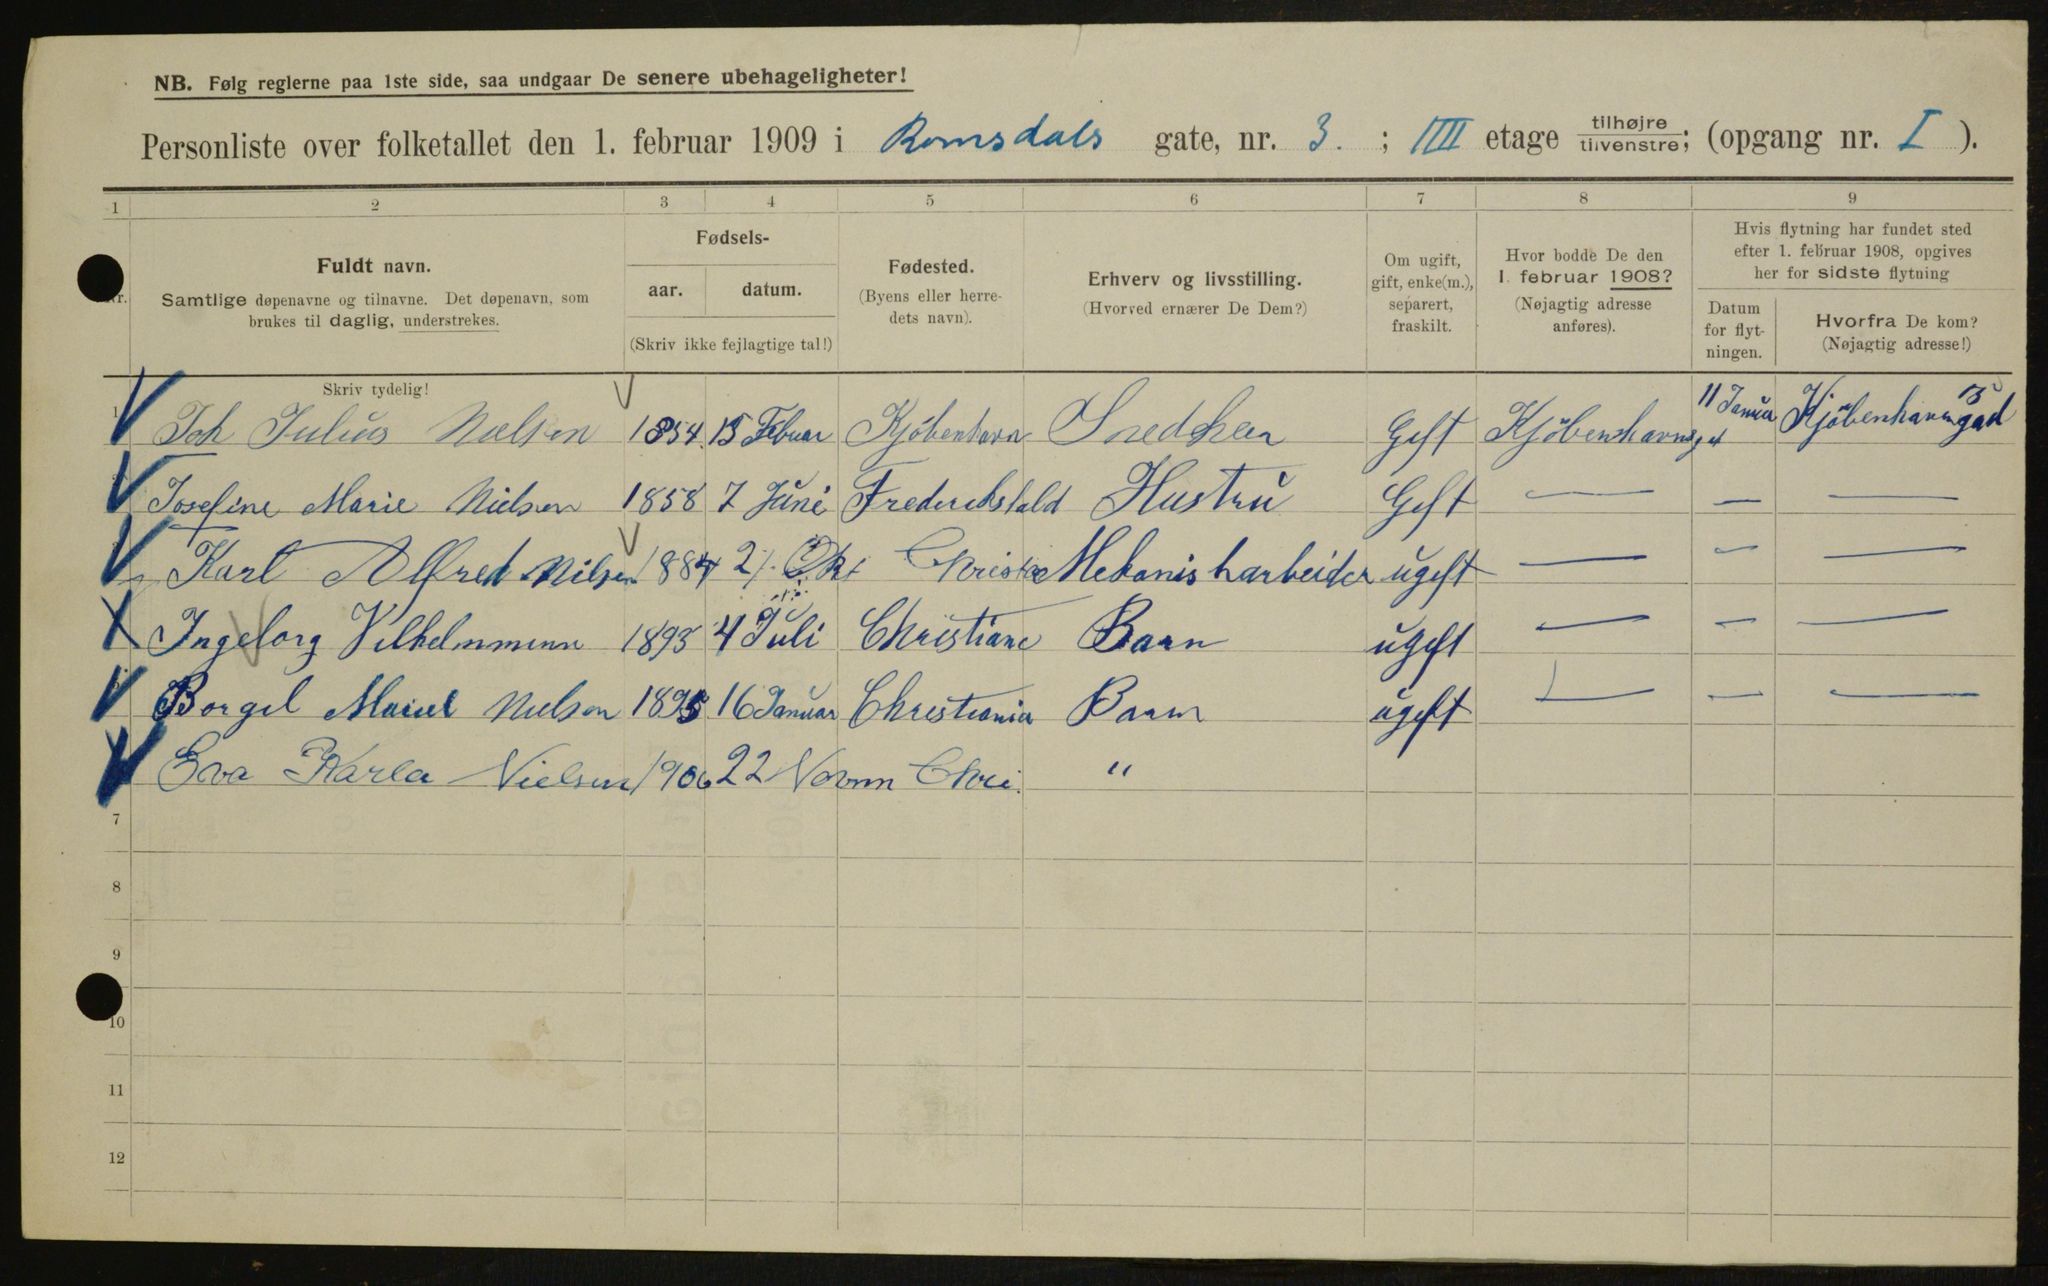 NB. Følg reglerne paa 1ste side, saa undgaar De senere ubehageligheter!
Personliste over folketallet den 1. februar 1909 i Romsdals gate, nr. 3. ; IIII etage tilhøjre tilvenstre; (opgang nr. I ).
1 2 3 4 5 6 7 8 9
Nr.
Fuldt navn.
Samtlige døpenavne og tilnavne. Det døpenavn, som
brukes til daglig, understrekes.
Fødsels-
aar. datum.
(Skriv ikke fejlagtige tal!)
Fødested.
(Byens eller herre-
dets navn).
Erhverv og livsstilling.
(Hvorved ernærer De Dem?)
Om ugift,
gift, enke(m.),
separert,
fraskilt.
Hvor bodde De den
1. februar 1908?
(Nøjagtig adresse
anføres).
Hvis flytning har fundet sted
efter 1. februar 1908, opgives
her for sidste flytning
Datum
for flyt-
ningen.
Hvorfra De kom?
(Nøjagtig adresse!)
Skriv tydelig!
1 Joh Julius Nielsen 1854. 15 Februar Kjøbenhavn Geft Kjøbenhavnsgt 11 Janua Kjøbenhavngad
Josefine Marie Nielsen 1858 7 Juni Hustru Geft — — —
Karl Alfred Nilsen 1884 Okt Mekaniskarbeider ugeft — — —
Ingeborg 1893 4 Juli Christiane Barn ugeft — — —
Nielsen 16 Januar Christiania Barn ugeft — — —
Eva Karla Nielsen 1906 22 Novmn Chri. "
7
8
9
10
11
12